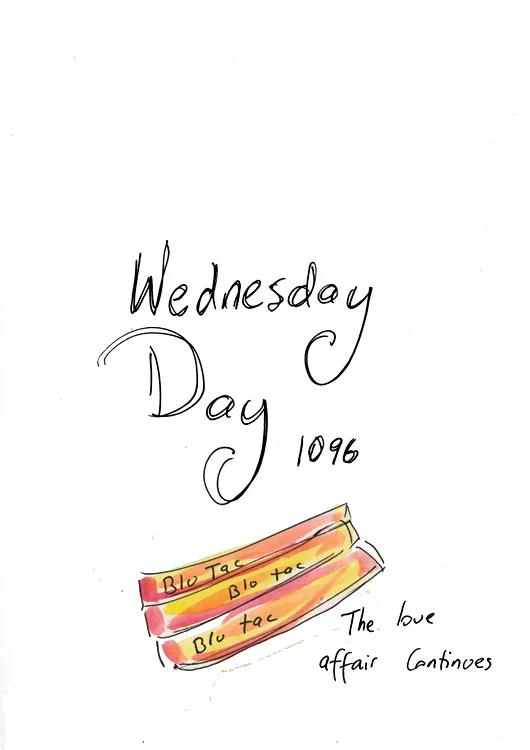 Wednesday
Day
1096
Blu Tac
Blu tac
Blu tac
The love
affair Continues